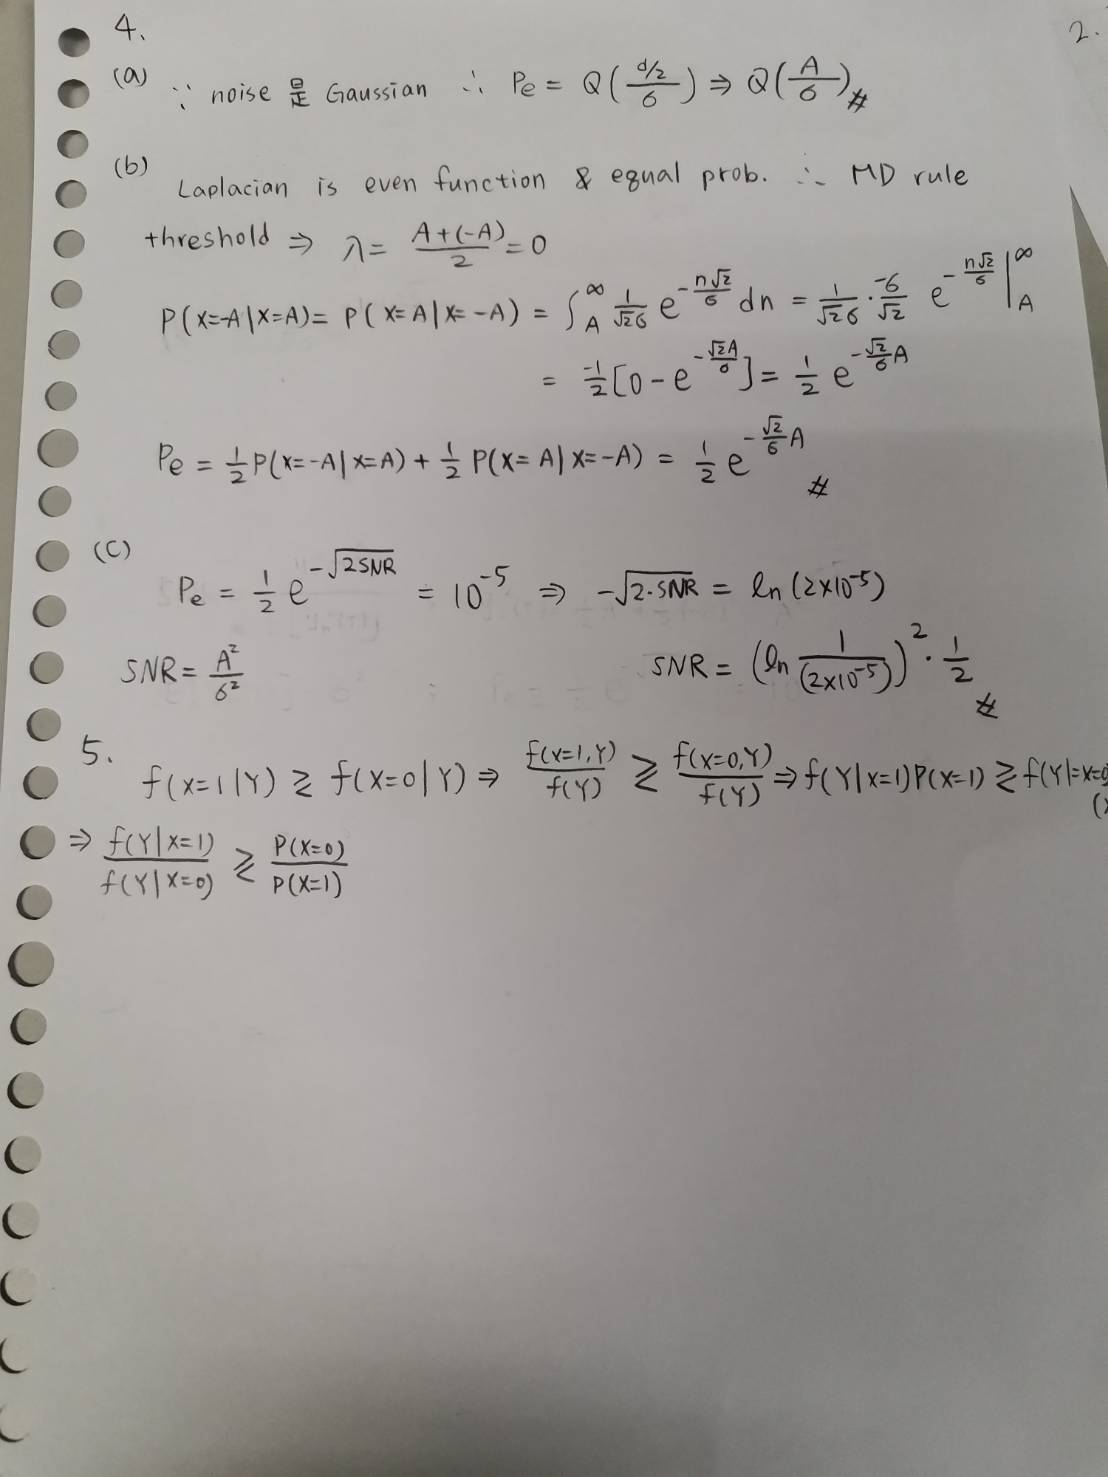 2.
4.
(a) ∵ noise 是 Gaussian ∴ Pe = Q( (d/2)/σ ) ⇒ Q( A/σ ) #
(b) Laplacian is even function & equal prob. ∴ MD rule
threshold ⇒ λ = (A+(-A))/2 = 0
P(X=-A|X=A) = P(X=A|X=-A) = ∫_A^∞ 1/(√2σ) e^(-n√2/σ) dn = 1/(√2σ) · -σ/√2 e^(-n√2/σ) |_A^∞
= -1/2 [0 - e^(-√2A/σ)] = 1/2 e^(-√2/σ A)
Pe = 1/2 P(X=-A|X=A) + 1/2 P(X=A|X=-A) = 1/2 e^(-√2/σ A) #
(C) Pe = 1/2 e^(-√(2SNR)) = 10^-5 ⇒ -√(2·SNR) = ln(2×10^-5)
SNR = A²/σ² SNR = (ln 1/(2×10^-5))² · 1/2 #
5. f(X=1|Y) ≷ f(X=0|Y) ⇒ f(X=1,Y)/f(Y) ≷ f(X=0,Y)/f(Y) ⇒ f(Y|X=1)P(X=1) ≷ f(Y|=X=0
⇒ f(Y|X=1)/f(Y|X=0) ≷ P(X=0)/P(X=1)